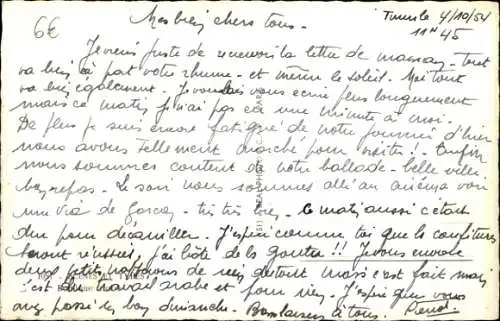 6€
Tunis le 4/10/54
11H45
Mes bien chers tous -
Je viens juste de recevoir la lettre de maman - tout
va bien à part votre rhume - et même le soleil. Ici tout
va bien également. Je voulais vous écrire plus longuement
mais ce matin je n'ai pas eu une minute à moi.
De plus je suis encore fatigué de notre journée d'hier
nous avons tellement marché pour visiter! Enfin
nous sommes content de notre ballade - belle ville
bon repas - Le soir nous sommes allé au cinéma voir
une vie de garçon - très très bien. Ce matin aussi c'était
dur pour décaniller. J'espère comme toi que la confiture
seront réussies, j'ai hâte de la goûter!! Je vous envoie
deux petits de rien du tout mais c'est fait main
c'est du travail arabe et pour rien. J'espère que vous
avez passé un bon dimanche. Bons baisers à tous.